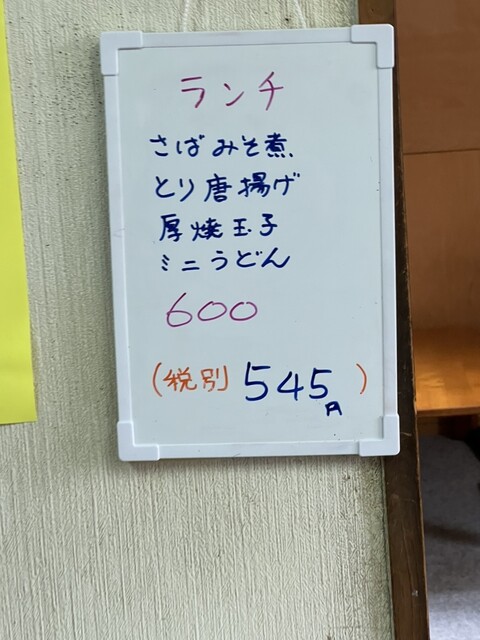 ランチ
さばみそ煮
とり唐揚げ
厚焼玉子
ミニうどん
600
(税別 545円)